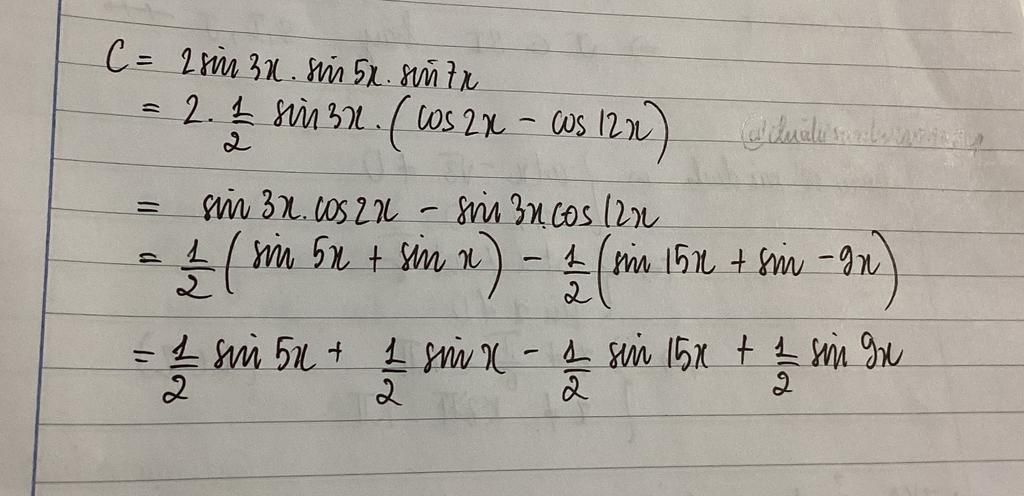 C = 2 sin 3x . sin 5x . sin 7x
= 2 . 1/2 sin 3x . (cos 2x - cos 12x)
= sin 3x . cos 2x - sin 3x . cos 12x
= 1/2 (sin 5x + sin x) - 1/2 (sin 15x + sin -9x)
= 1/2 sin 5x + 1/2 sin x - 1/2 sin 15x + 1/2 sin 9x